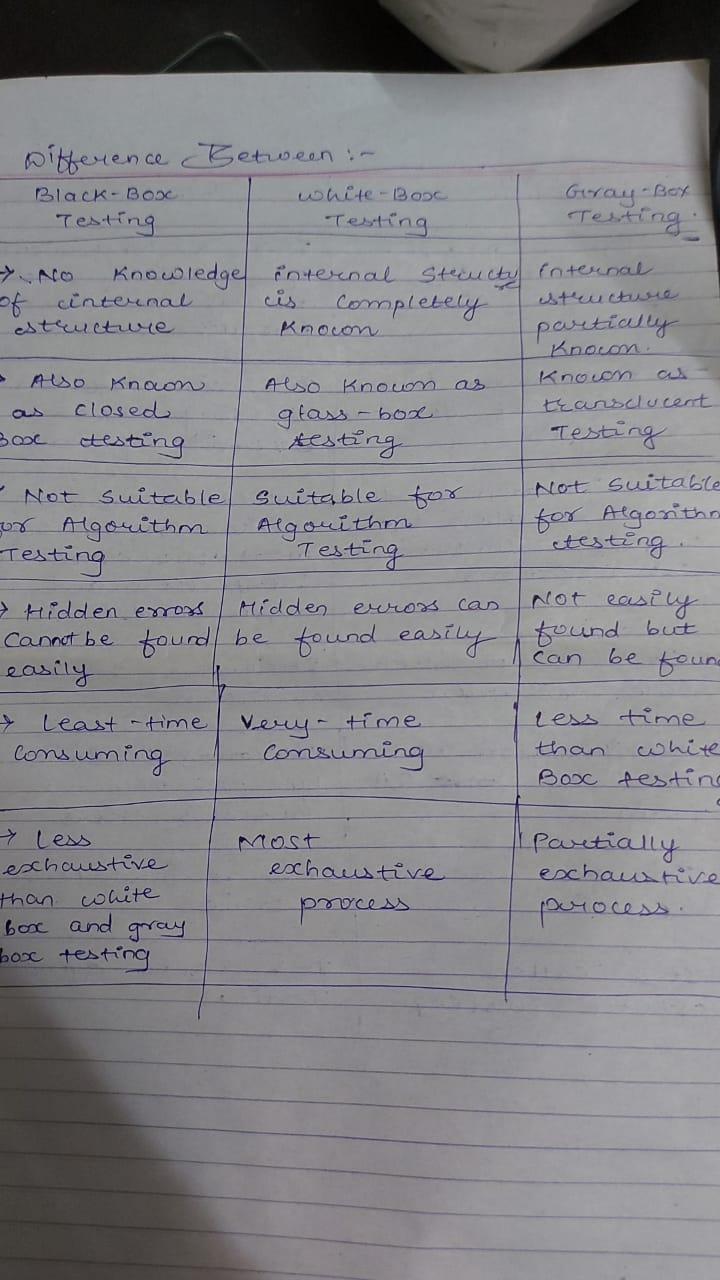 Difference Between :-
Black-Box
Testing
White-Box
Testing
Gray-Box
Testing.
→ No Knowledge
of internal
structure
internal structu
is completely
Known
internal
structure
partially
Known.
Also Known
as closed
Box testing
Also Known as
glass-box
testing
Known as
translucent
Testing
Not Suitable
for Algorithm
Testing
Suitable for
Algorithm
Testing
Not Suitable
for Algorithm
testing.
→ Hidden errors
Cannot be found
easily
Hidden errors can
be found easily
Not easily
found but
can be foun
→ Least-time
Consuming
Very-time
Consuming
Less time
than white
Box testing
→ Less
exhaustive
than white
box and gray
box testing
Most
exhaustive
process
Partially
exhaustive
process.